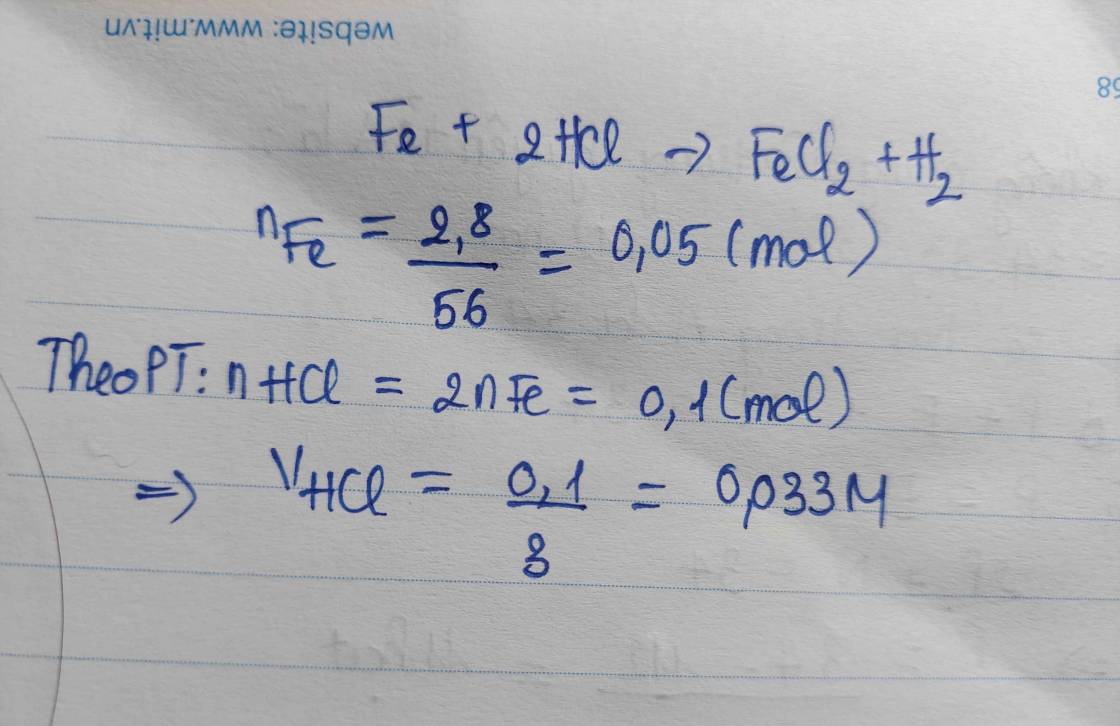 website: www.mit.vn
68
Fe + 2HCl → FeCl₂ + H₂
nFe = 2,8/56 = 0,05 (mol)
Theo PT: nHCl = 2nFe = 0,1 (mol)
⇒ VHCl = 0,1/3 = 0,033M